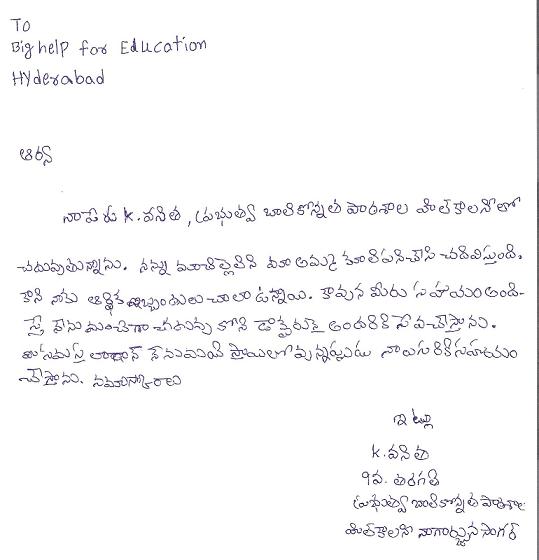 To
Big help for Education
Hyderabad
ఆర్య
నా పేరు K. వనిత, ప్రభుత్వ బాలికోన్నత పాఠశాల హిల్ కాలనీలో
చదువుతున్నాను. నన్ను మా అమ్మ కూలిపనిచేసి చదివిస్తుంది.
కాని నాకు ఆర్థిక ఇబ్బందులు చాలా ఉన్నాయి. కావున మీరు సహాయం అంది-
స్తే నేను మంచిగా చదువు కోని డాక్టరునై అందరికి సేవచేస్తాను.
నేను మంచి స్థాయిలో వున్నప్పుడు సహాయం
చేస్తాను. నమస్కారాలు
ఇట్లు
K. వనిత
9వ. తరగతి
ప్రభుత్వ బాలికోన్నత పాఠశాల
హిల్ కాలని నాగార్జున సాగర్